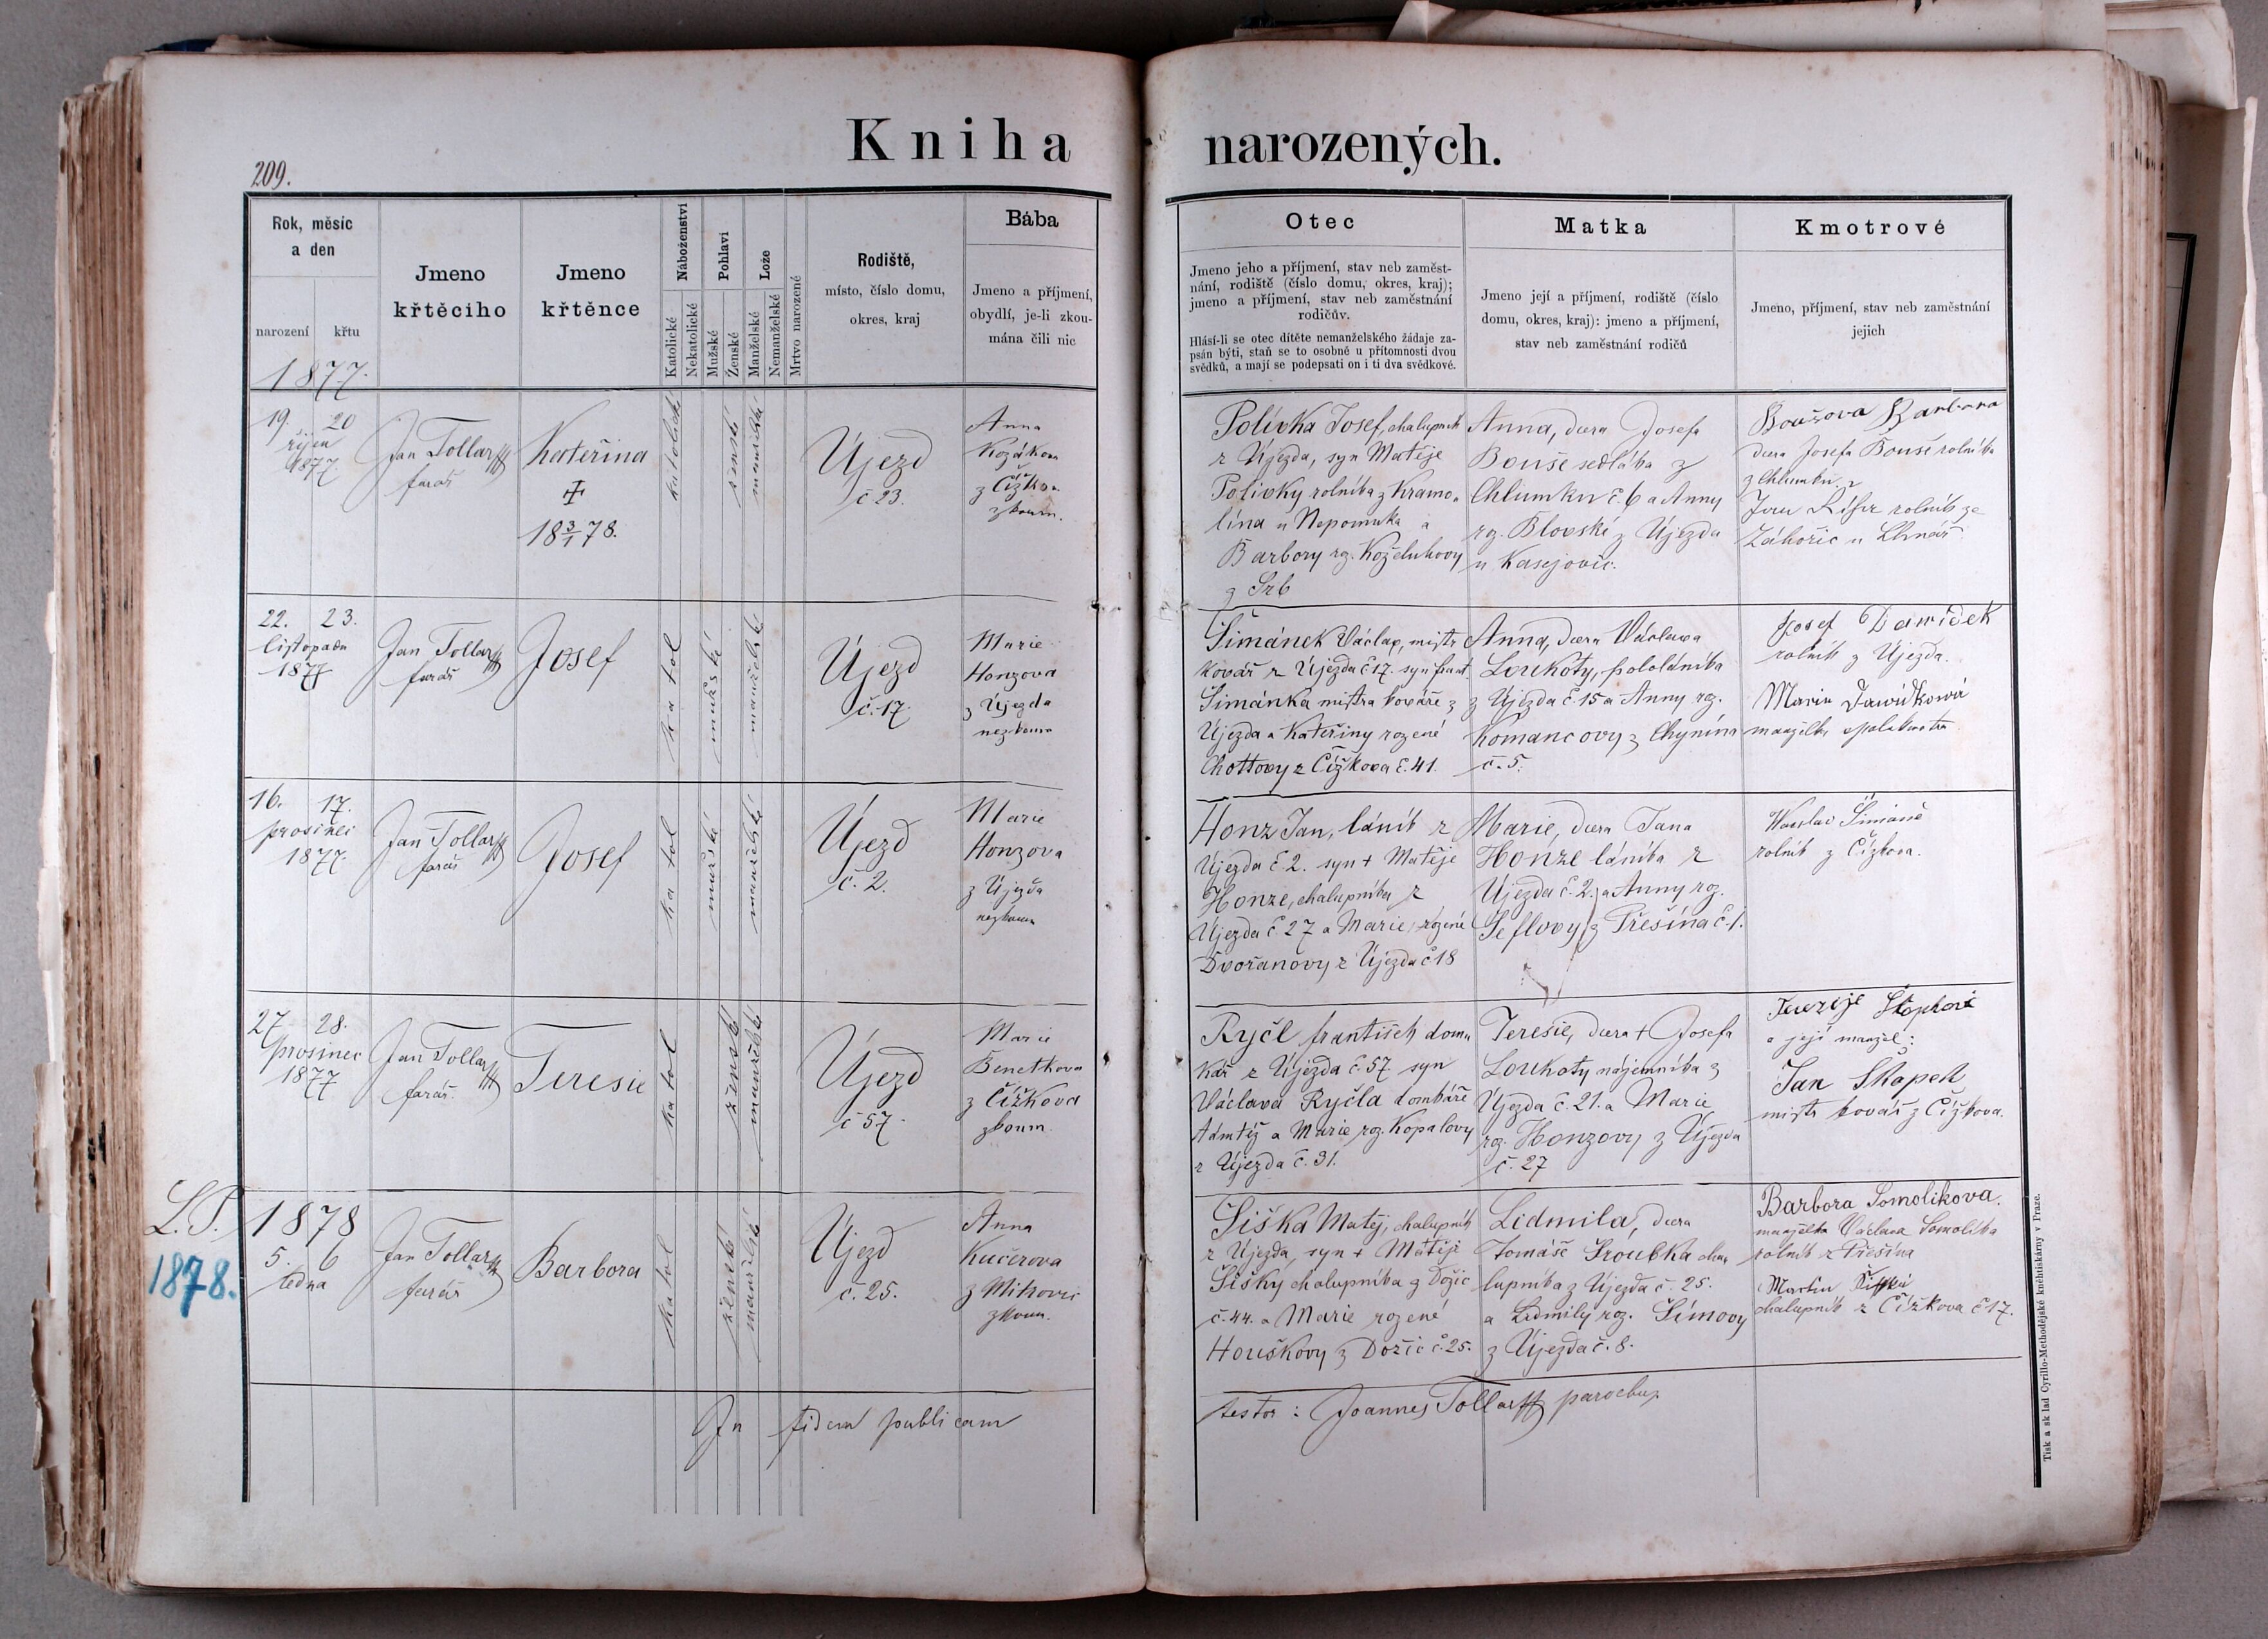 Kniha narozených.
209.
Rok, měsíc
a den
narození křtu
Jmeno
křtěcího
Jmeno
křtěnce
Náboženství
Katolické
Nekatolické
Pohlaví
Mužské
Ženské
Lože
Manželské
Nemanželské
Mrtvo narozené
Rodiště,
místo, číslo domu,
okres, kraj
Bába
Jmeno a příjmení,
obydlí, je-li zkou-
mána čili nic
Otec
Jmeno jeho a příjmení, stav neb zaměst-
nání, rodiště (číslo domu, okres, kraj);
jmeno a příjmení, stav neb zaměstnání
rodičův.
Hlásí-li se otec dítěte nemanželského žádaje za-
psán býti, staň se to osobně u přítomnosti dvou
svědků, a mají se podepsati on i ti dva svědkové.
Matka
Jmeno její a příjmení, rodiště (číslo
domu, okres, kraj): jmeno a příjmení,
stav neb zaměstnání rodičů
Kmotrové
Jmeno, příjmení, stav neb zaměstnání
jejich
1877.
19. 20
říjen
1877.
Jan Tollar
farář
Kateřina
18 3/1 78.
katolické
ženské
manželské
Újezd
č 23.
Anna
Kozákova
z Čížkova
zkoum.
Polívka Josef, chalupník
z Újezda, syn Matěje
Polívky rolníka z Kramo-
lína u Nepomuka a
Barbory rz. Koželuhovy
z Srb
Anna, dcera Josefa
Bouše sedláka z
Chlumku č. 6 a Anny
rz. Blovské z Újezda
u Kasejovic.
Boušova Barbora
dcera Josefa Bouše rolníka
z Chlumku.
Jan rolník ze
Záhořic u
22. 23.
listopadu
1877
Jan Tollar
farář
Josef
katol
mužské
manželské
Újezd
č. 17.
Marie
Honzova
z Újezda
nezkoum
Šimánek Václav, mistr
kovář z Újezda č 17. syn Frant.
Šimánka mistra kováře z
Újezda a Kateřiny rozené
Chottovy z Čížkova č. 41.
Anna, dcera Václava
Loukoty, pololáníka
z Újezda č. 15 a Anny rz.
Komancovy z Chynína
č. 5.
Josef Dawídek
rolník z Újezda.
Maria Dawídková
manželka
16. 17.
prosinec
1877.
Jan Tollar
farář
Josef
katol
mužské
manželské
Újezd
č. 2.
Marie
Honzova
z Újezda
nezkoum
Honz Jan, láník z
Újezda č. 2. syn † Matěje
Honze, chalupníka z
Újezda č 27 a Marie, rozené
Dvořanovy z Újezda č 18
Marie, dcera Jana
Honze láníka z
Újezda č. 2. a Anny roz.
Šeflovy z Přešína č. 1.
Šimáně
rolník z Čížkova.
27 28.
prosinec
1877
Jan Tollar
farář.
Teresie
katol
ženské
manželské
Újezd
č 57.
Marie
Benethova
z Čížkova
zkoum.
Ryčl František dom-
kář z Újezda č. 57 syn
Václava Ryčla domkáře
tamtéž a Marie rz. Kopalovy
z Újezda č. 31.
Teresie, dcera † Josefa
Loukoty nájemníka z
Újezda č. 21. a Marie
rz. Honzovy z Újezda
č. 27
a její manžel:
Jan Skopek
mistr kovář z Čížkova.
L. P. 1878
1878.
5. 6
ledna
Jan Tollar
farář
Barbora
katol
ženské
manželské
Újezd
č. 25.
Anna
Kučerova
z Mítovic
zkoum.
Šiška Matěj, chalupník
z Újezda, syn † Matěje
Šišky chalupníka z Dožic
č. 44. a Marie rozené
Houškovy z Dožic č. 25.
Lidmila, dcera
Tomáše Sroubka cha-
lupníka z Újezda č. 25.
a Lidmily roz. Šímovy
z Újezda č. 8.
Barbora Somolikova.
manželka Václava Somolíka
rolník z Přešína
Martin
chalupník z Čížkova č 17.
In fidem publicam
testor: Joannes Tollar parochus
Tisk a sklad Cyrillo-Methodějské knihtiskárny v Praze.